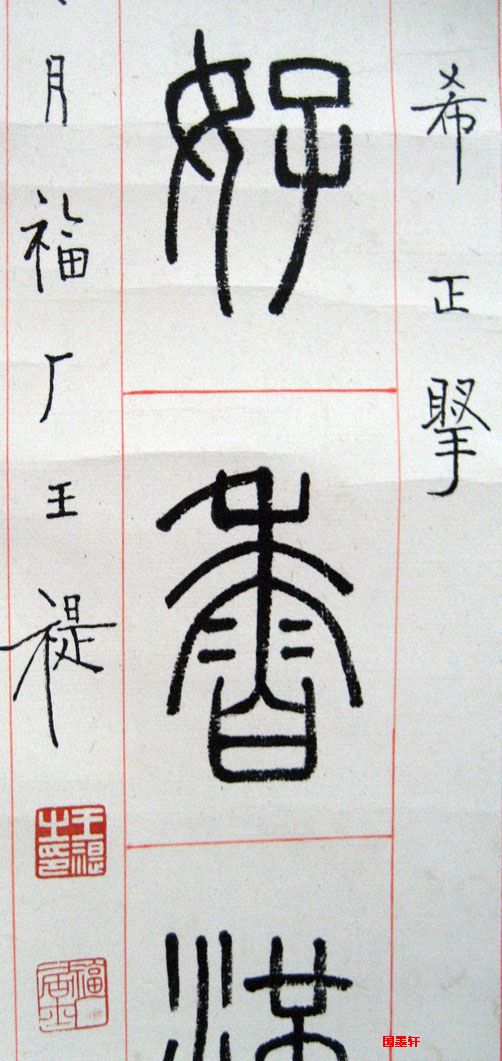 希正掔
好香
月福厂王禔
王禔之印
福厂居士
国墨轩